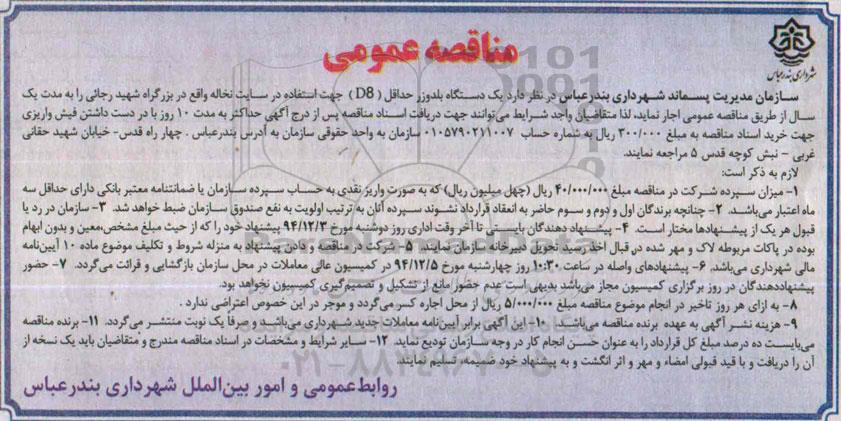 مناقصه عمومی
شهرداری بندرعباس
سازمان مدیریت پسماند شهرداری بندرعباس در نظر دارد یک دستگاه بلدوزر حداقل (D8) جهت استفاده در سایت نخاله واقع در بزرگراه شهید رجائی را به مدت یک
سال از طریق مناقصه عمومی اجار نماید، لذا متقاضیان واجد شرایط می‌توانند جهت دریافت اسناد مناقصه پس از درج آگهی حداکثر به مدت ۱۰ روز با در دست داشتن فیش واریزی
جهت خرید اسناد مناقصه به مبلغ ۳۰۰/۰۰۰ ریال به شماره حساب ۰۱۰۵۷۹۰۲۱۱۰۰۷ سازمان به واحد حقوقی سازمان به آدرس بندرعباس . چهار راه قدس- خیابان شهید حقانی
غربی – نبش کوچه قدس ۵ مراجعه نمایند.
لازم به ذکر است:
۱- میزان سپرده شرکت در مناقصه مبلغ ۴۰/۰۰۰/۰۰۰ ریال (چهل میلیون ریال) که به صورت واریز نقدی به حساب سپرده سازمان یا ضمانتنامه معتبر بانکی دارای حداقل سه
ماه اعتبار می‌باشد. ۲- چنانچه برندگان اول و دوم و سوم حاضر به انعقاد قرارداد نشوند سپرده آنان به ترتیب اولویت به نفع صندوق سازمان ضبط خواهد شد. ۳- سازمان در رد یا
قبول هر یک از پیشنهادها مختار است. ۴- پیشنهاد دهندگان بایستی تا آخر وقت اداری روز دوشنبه مورخ ۹۴/۱۲/۳ پیشنهاد خود را که از حیث مبلغ مشخص،معین و بدون ابهام
بوده در پاکات مربوطه لاک و مهر شده در قبال اخذ رسید تحویل دبیرخانه سازمان نمایند. ۵- شرکت در مناقصه و دادن پیشنهاد به منزله شروط و تکلیف موضوع ماده ۱۰ آیین‌نامه
مالی شهرداری می‌باشد. ۶- پیشنهادهای واصله در ساعت ۱۰:۳۰ روز چهارشنبه مورخ ۹۴/۱۲/۵ در کمیسیون عالی معاملات در محل سازمان بازگشایی و قرائت می‌گردد. ۷- حضور
پیشنهاددهندگان در روز برگزاری کمیسیون مجاز می‌باشد بدیهی است عدم حضور مانع از تشکیل و تصمیم‌گیری کمیسیون نخواهد بود.
۸- به ازای هر روز تاخیر در انجام موضوع مناقصه مبلغ ۵/۰۰۰/۰۰۰ ریال از محل اجاره کسر می‌گردد و موجر در این خصوص اعتراضی ندارد .
۹- هزینه نشر آگهی به عهده برنده مناقصه می‌باشد. ۱۰- این آگهی برابر آیین‌نامه معاملات جدید شهرداری می‌باشد و صرفاً یک نوبت منتشر می‌گردد. ۱۱- برنده مناقصه
می‌بایست ده درصد مبلغ کل قرارداد را به عنوان حسن انجام کار در وجه سازمان تودیع نماید. ۱۲- سایر شرایط و مشخصات در اسناد مناقصه مندرج و متقاضیان باید یک نسخه از
آن را دریافت و با قید قبولی امضاء و مهر و اثر انگشت و به پیشنهاد خود ضمیمه، تسلیم نمایند
روابط‌عمومی و امور بین‌الملل شهرداری بندرعباس